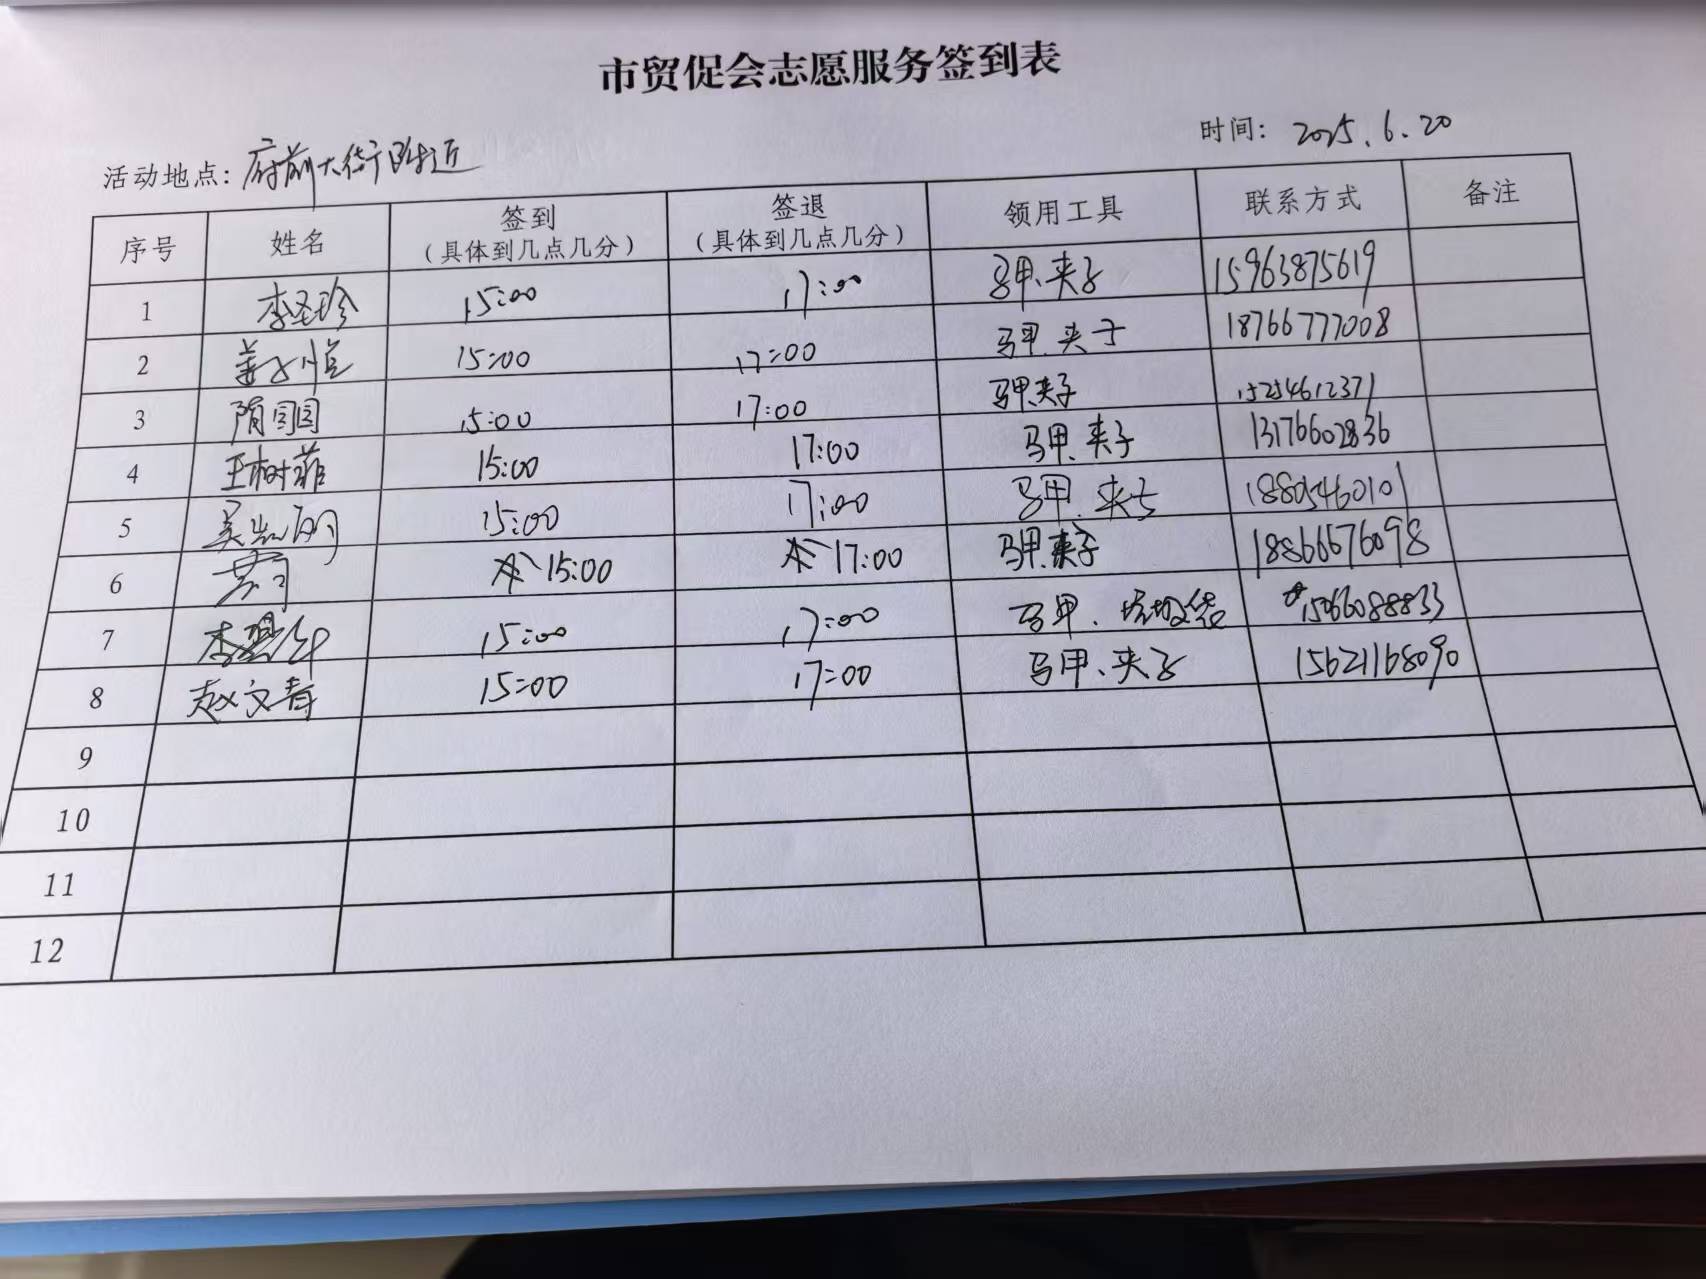 市贸促会志愿服务签到表
活动地点：府前大街附近 时间：2025.6.20
序号 姓名 签到（具体到几点几分） 签退（具体到几点几分） 领用工具 联系方式 备注
1 李圣珍 15:00 17:00 马甲、夹子 15963875619
2 姜子恒 15:00 17:00 马甲、夹子 18766777008
3 隋园园 15:00 17:00 马甲、夹子 15254612371
4 王树菲 15:00 17:00 马甲、夹子 13176602836
5 15:00 17:00 马甲、夹子 18805460101
6 15:00 17:00 马甲、夹子 18866676098
7 15:00 17:00 马甲、垃圾袋 15066088833
8 赵文春 15:00 17:00 马甲、夹子 15621168090
9
10
11
12